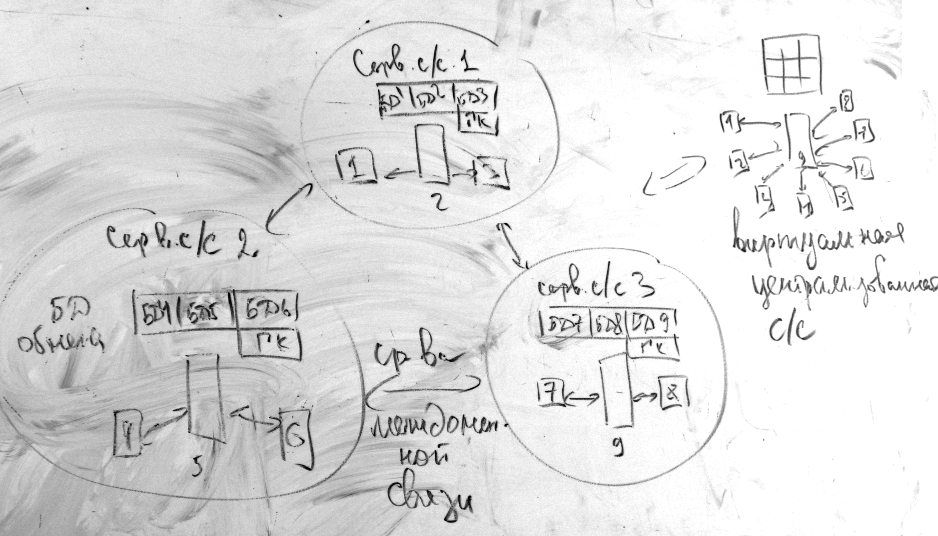 Серв. с/с. 1
БД1 БД2 БД3
ГК
1
2
3
Серв. с/с 2.
БД
обмена
БД4 БД5 БД6
ГК
4
5
6
серв. с/с 3
БД7 БД8 БД9
ГК
7
8
9
ср-ва
междомен-
ной
связи
1
2
9
8
7
6
5
4
виртуальная
централизованная
с/с